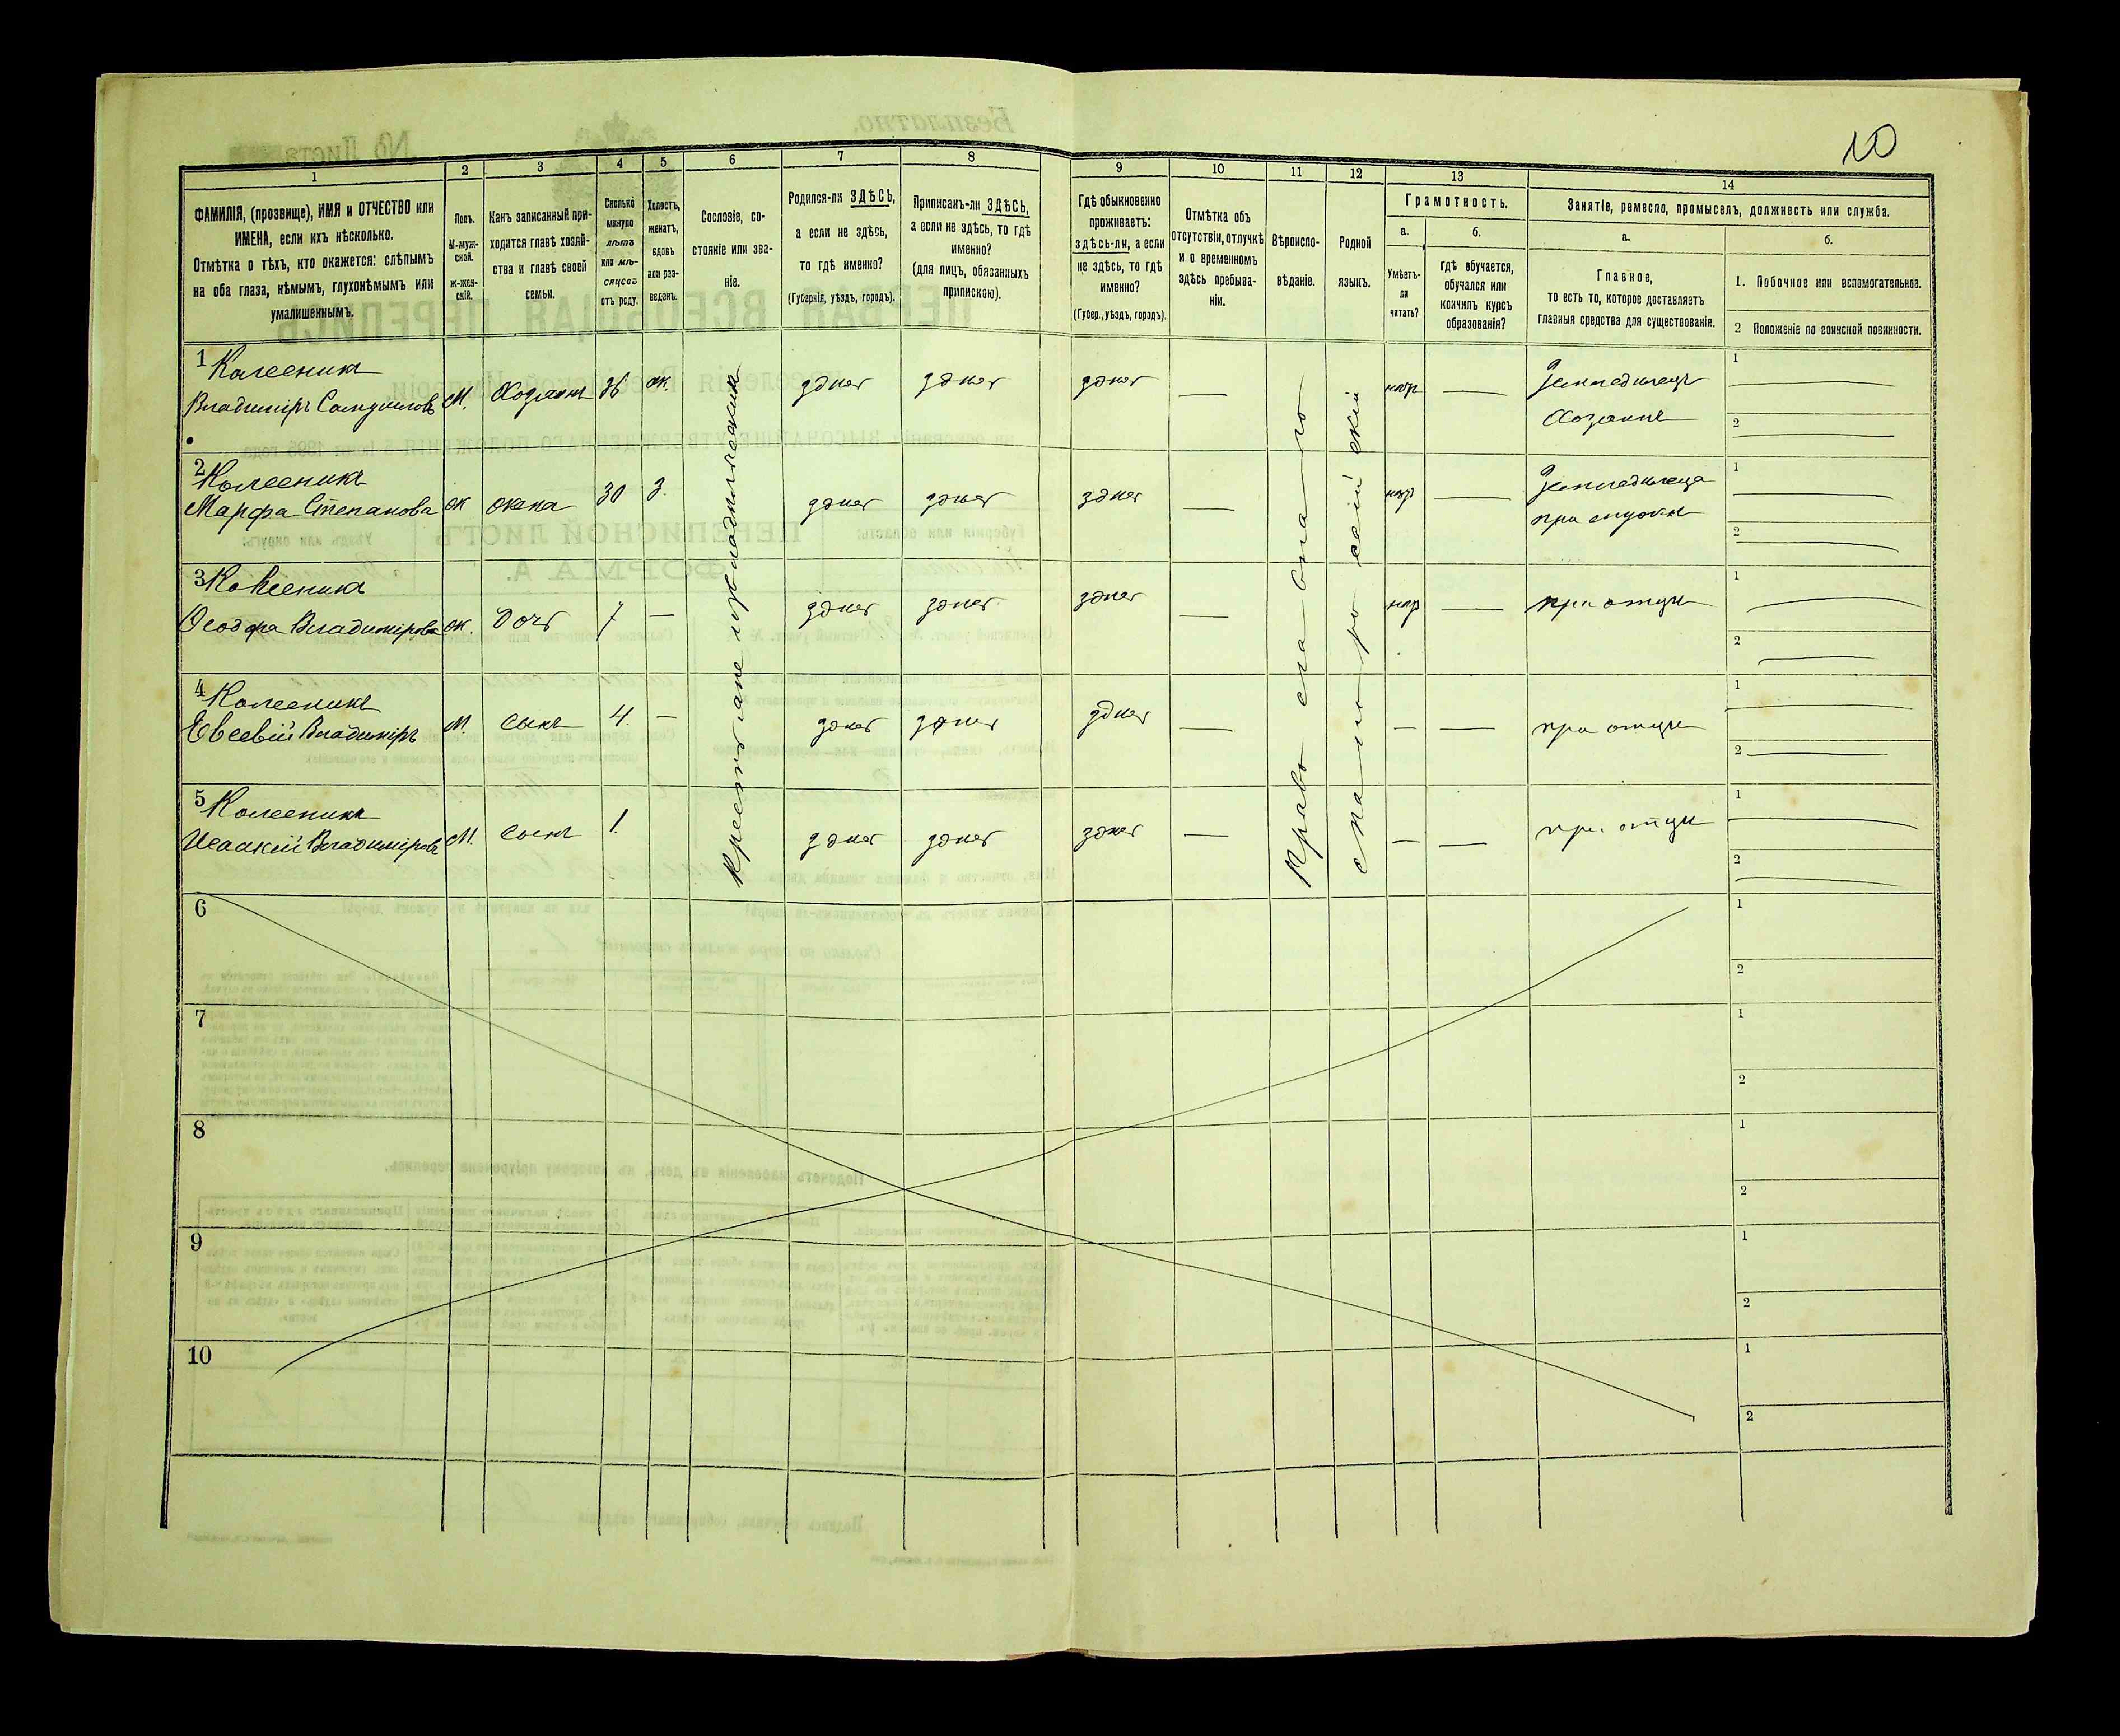 10
1
2
3
4
5
6
7
8
9
10
11
12
13
14
ФАМИЛІЯ, (прозвище), ИМЯ и ОТЧЕСТВО или
ИМЕНА, если ихъ нѣсколько.
Отмѣтка о тѣхъ, кто окажется: слѣпымъ
на оба глаза, нѣмымъ, глухонѣмымъ или
умалишеннымъ.
Полъ.
М-муж-
ской.
ж-жен-
скій.
Какъ записанный при-
ходится главѣ хозяй-
ства и главѣ своей
семьи.
Сколько
минуло
лѣтъ
или мѣ-
сяцевъ
отъ роду.
Холостъ,
женатъ,
вдовъ
или раз-
веденъ.
Сословіе, со-
стояніе или зва-
ніе.
Родился-ли ЗДѢСЬ,
а если не здѣсь,
то гдѣ именно?
(Губернія, уѣздъ, городъ).
Приписанъ-ли ЗДѢСЬ,
а если не здѣсь, то гдѣ
именно?
(для лицъ, обязанныхъ
припискою).
Гдѣ обыкновенно
проживаетъ:
здѣсь-ли, а если
не здѣсь, то гдѣ
именно?
(Губер., уѣздъ, городъ).
Отмѣтка объ
отсутствіи, отлучкѣ
и о временномъ
здѣсь пребыва-
ніи.
Вѣроиспо-
вѣданіе.
Родной
языкъ.
Грамотность.
а.
Умѣетъ-
ли
читать?
б.
гдѣ обучается,
обучался или
кончилъ курсъ
образованія?
Занятіе, ремесло, промыселъ, должность или служба.
а.
Главное,
то есть то, которое доставляетъ
главныя средства для существованія.
б.
1. Побочное или вспомогательное.
2 Положеніе по воинской повинности.
1 Колесникъ
Владиміръ Самуиловъ М. Хозяинъ 36 ж. здѣсь здѣсь здѣсь — нѣтъ — Земледѣлецъ
Хозяинъ
1
2
2 Колесникъ
Марфа Степанова ж жена 30 з. здѣсь здѣсь здѣсь — нѣтъ — Земледѣлеца
при мужѣ
1
2
3 Колесникъ
Ѳеодора Владимірова ж. дочь 7 — здѣсь здѣсь здѣсь — нѣтъ — при отцѣ
1
2
4 Колесникъ
Евсевій Владиміръ М. сынъ 4. — здѣсь здѣсь здѣсь — — — при отцѣ
1
2
5 Колесникъ
Исаакій Владиміровъ М. сынъ 1. здѣсь здѣсь здѣсь — — — при отцѣ
1
2
Православнаго
6
1
2
7
1
2
8
1
2
9
1
2
10
1
2